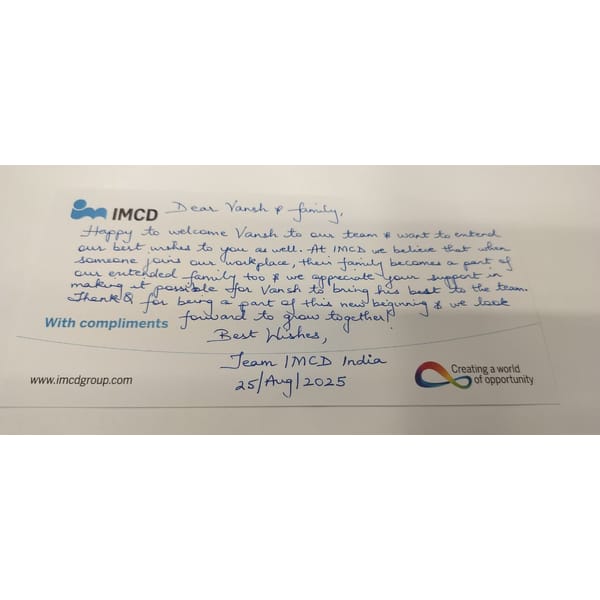 IMCD
Dear Vansh & family,
Happy to welcome Vansh to our team & want to extend
our best wishes to you as well. At IMCD we believe that when
someone joins our workplace, their family becomes a part of
our extended family too & we appreciate your support in
making it possible for Vansh to bring his best to the team.
Thank Q for being a part of this new beginning & we look
forward to grow together!
With compliments
Best Wishes,
Team IMCD India
25/Aug/2025
www.imcdgroup.com
Creating a world
of opportunity